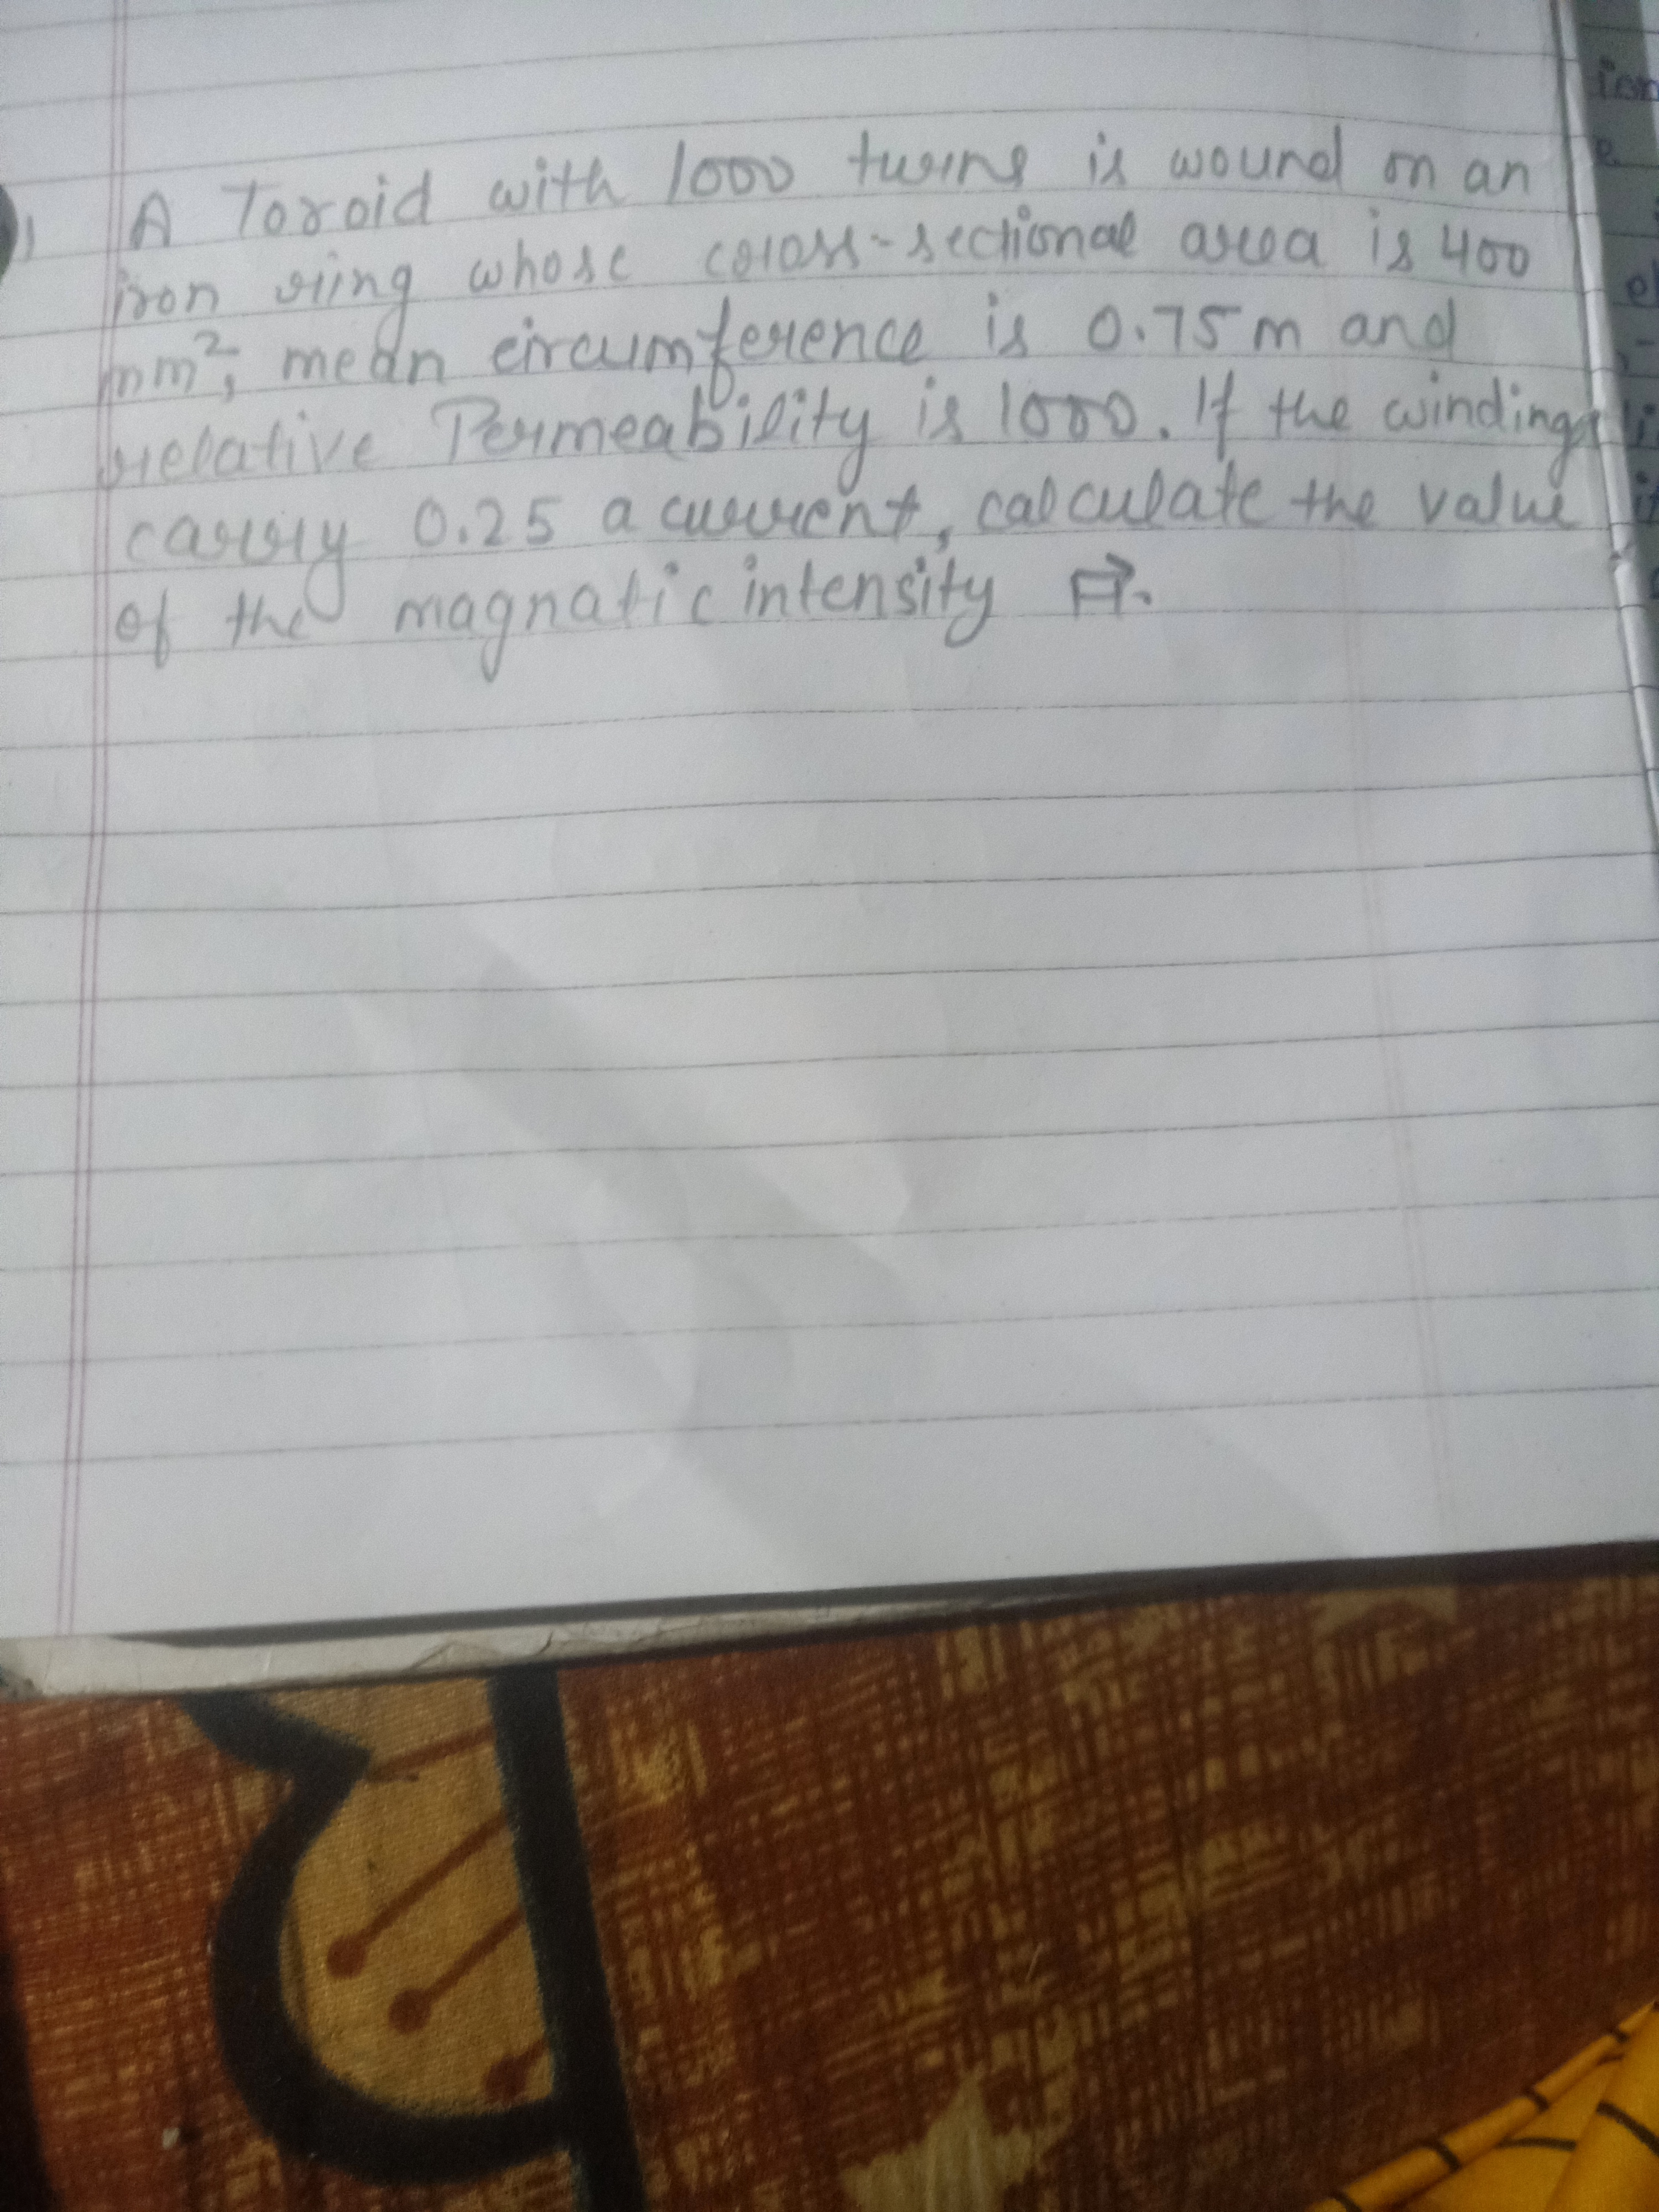 1) A Toroid with 1000 turns is wound on an
iron ring whose cross-sectional area is 400
mm², mean circumference is 0.75 m and
relative Permeability is 1000. If the windings
carry 0.25 a current, calculate the value
of the magnatic intensity H⃗.